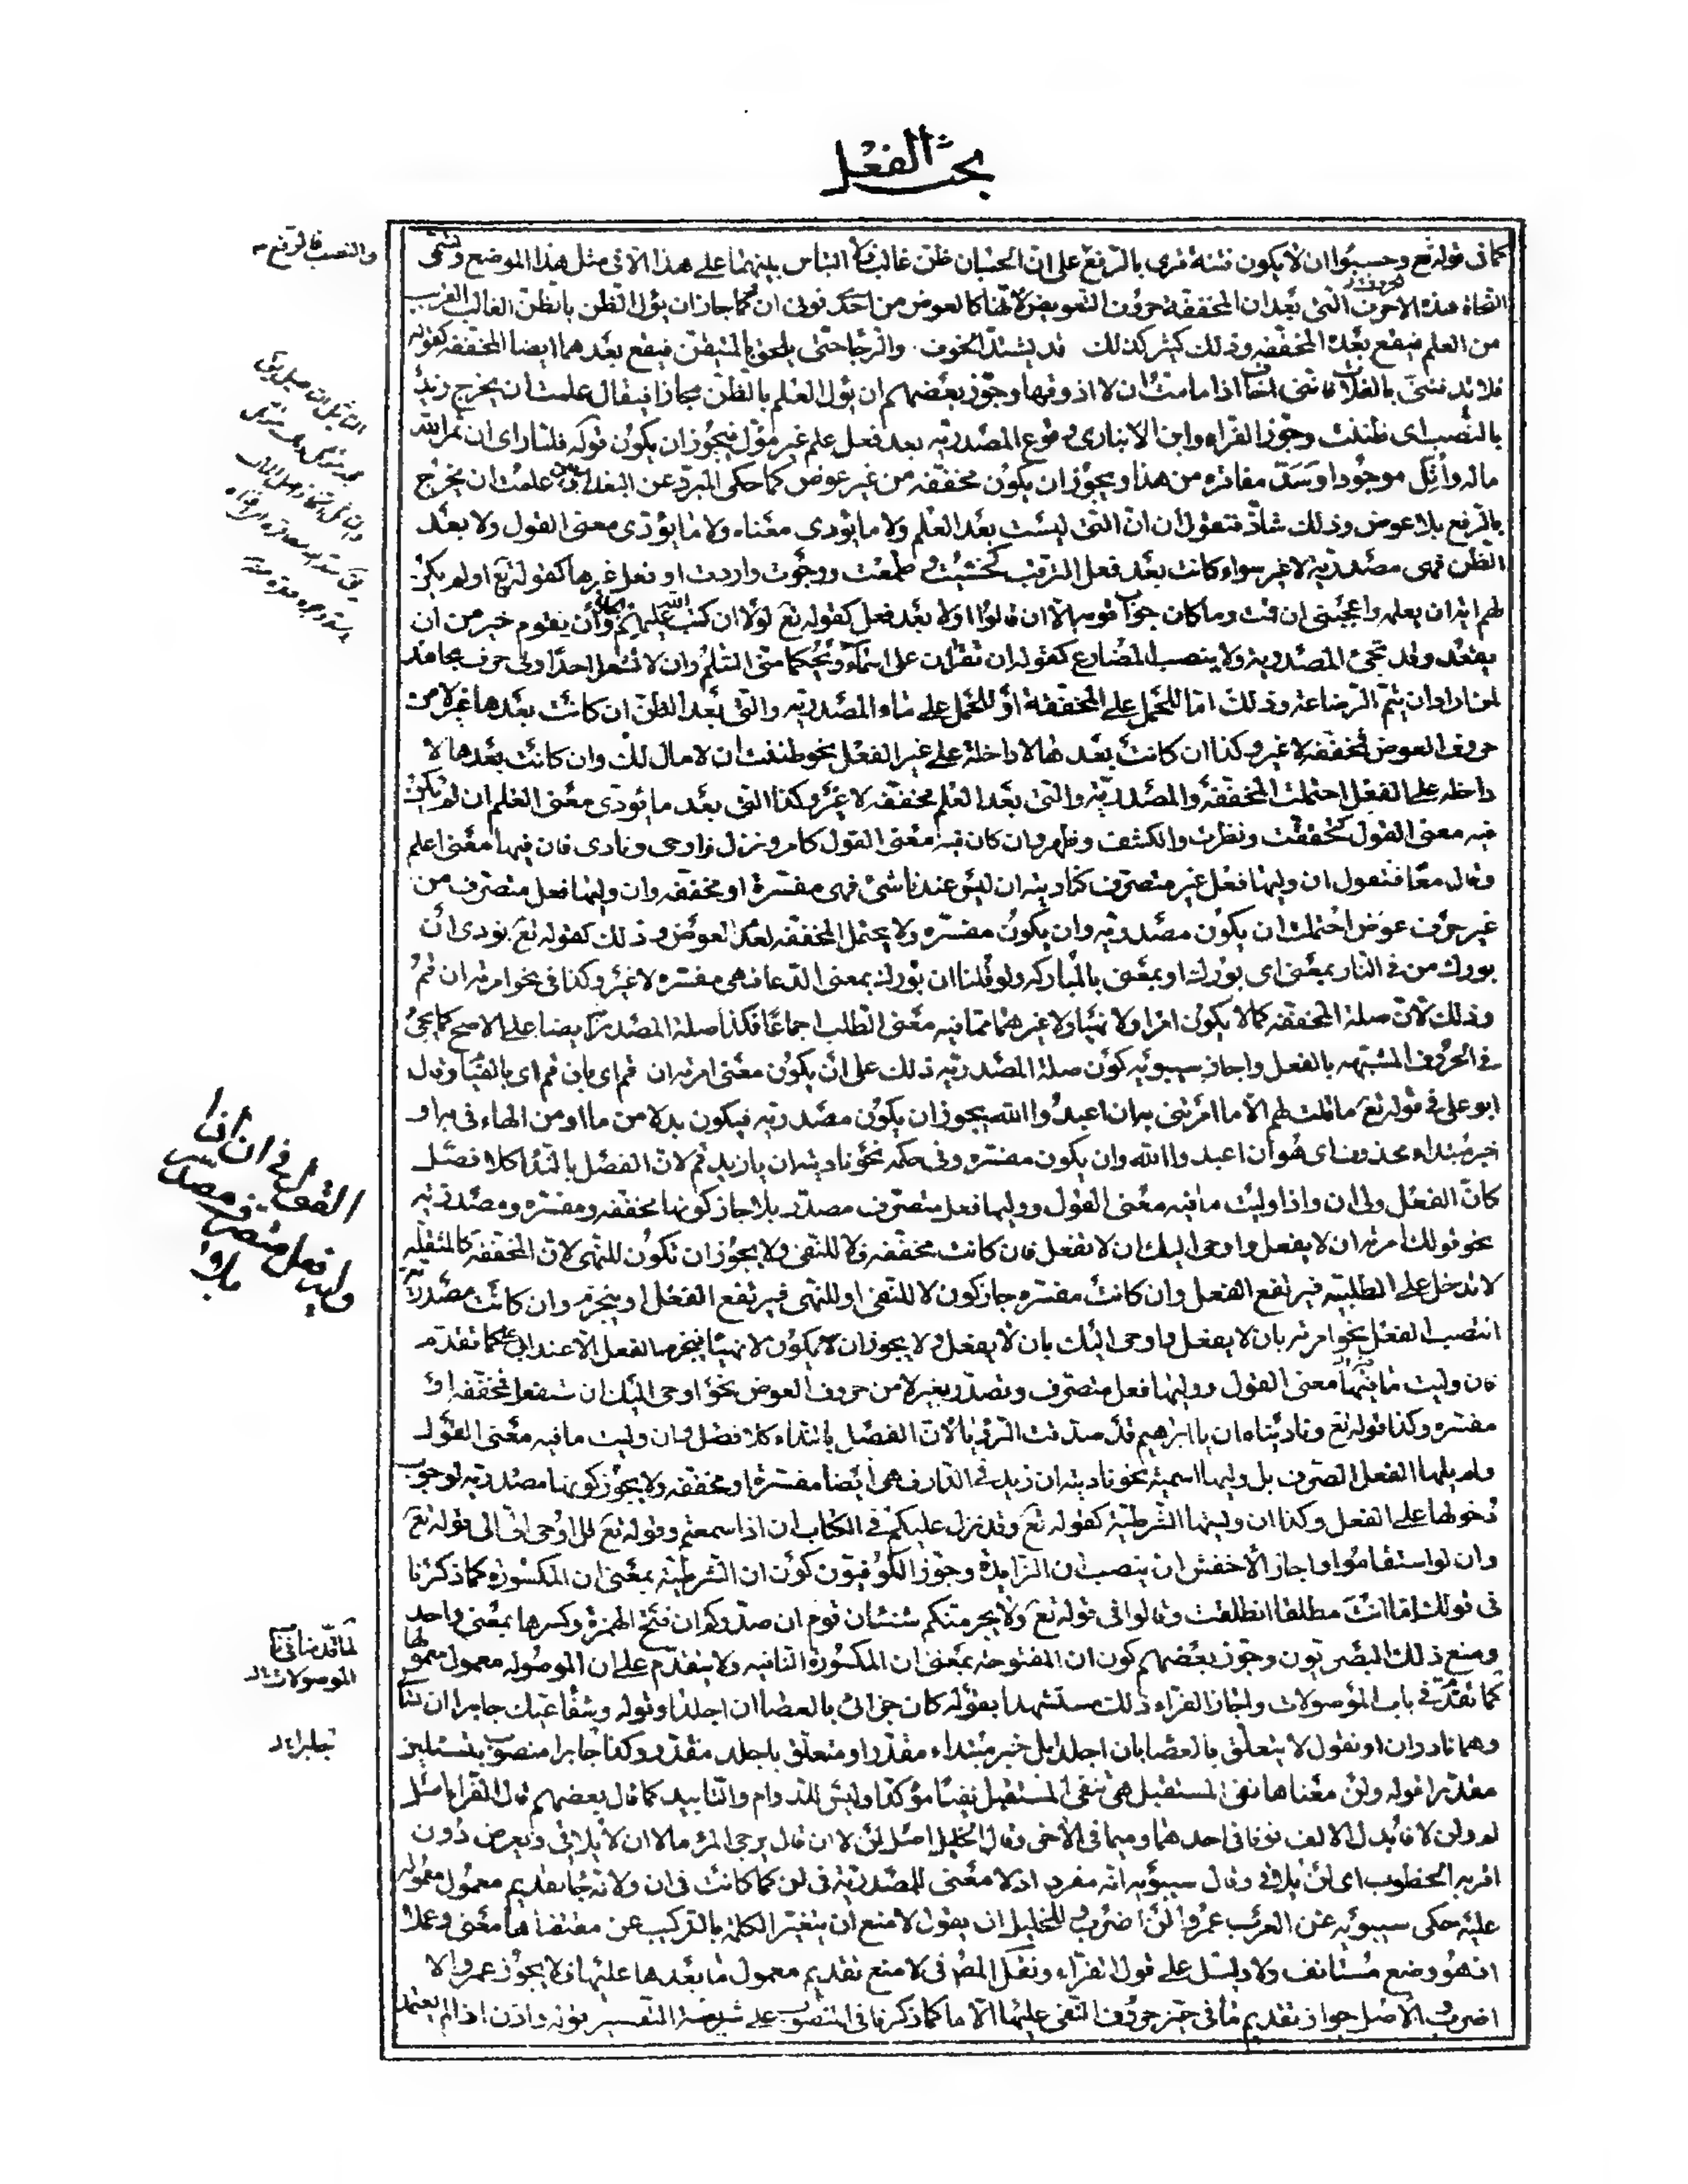 بحث الفعل
كما فى قوله تع وحسبوا ان لا يكون فتنة قرى بالرفع على ان الحسبان ظن غالب
والنصب فالرفع
النحاة هذه الاحرف التى بعد ان المخففة حروف التعويض لانها كالعوض من احدى نونى ان وكما جاز ان يؤل الظن بالظن الغالب القريب
من العلم فيقع بعده المخففة وذلك كثير كذلك قد يشتد الخوف والرجا حتى يلحق بالمتيقن فيقع بعدهما ايضا المخففة كقوله
فلا تدفننى بالفلاة فاننى اخاف اذا ما مت ان لا اذوقها وجوز بعضهم ان يؤل العلم بالظن مجازا فيقال علمت ان يخرج زيد
بالنصب اى ظننت وجوز الفراء وابن الانبارى وقوع المصدرية بعد فعل علم غير مؤل فيجوز ان يكون قوله فلما راى ان ثمر الله
ماله واثل موجودا وسد مفاقره من هذا ويجوز ان يكون مخففة من غير عوض كما حكى المبرد عن البغداديين علمت ان يخرج
بالرفع بلا عوض وذلك شاذ فتقول ان ان التى ليست بعد العلم ولا ما يؤدى معناه ولا ما يؤدى معنى القول ولا بعد
الظن فهى مصدرية لا غير سواء كانت بعد فعل الترقب كخشيت و طمعت ورجوت واردت او فعل غيرها كقوله تع او لم يكن
لهم اية ان يعلمه واعجبنى ان قمت وما كان جواب قومه الا ان قالوا او لا بعد فعل كقوله تع لولا ان كتب الله عليهم الجلاء وان يقوم خير من ان
يقعد وقد تجئ المصدرية ولا ينصب المضارع كقوله ان تقرآن على اسماء ويحكما منى السلم وان لا تشعرا احدا وفى حرف مجاهد
لمن اراد ان يتم الرضاعة وذلك اما للحمل على المخففة او للحمل على ما المصدرية والتى بعد الظن ان كانت بعدها غير لا من
حروف العوض فمخففة لا غير وكذا ان كانت بعدها لا داخلة على غير الفعل نحو ظننت ان لا مال لك وان كانت بعدها لا
داخلة على الفعل احتملت المخففة والمصدرية والتى بعد العلم مخففة لا غير وكذا التى بعد ما يؤدى معنى العلم ان لم يكن
فيه معنى القول كتحققت ونظرت وانكشف وظهر وان كان فيه معنى القول كامر ونزل واوحى ونادى فان فيها معنى اعلم
وقال معا فتقول ان وليها فعل غير متصرف كناديته ان ليس عندنا شئ فهى مفسرة او مخففة وان وليها فعل متصرف من
غير حرف عوض احتملت ان يكون مصدرية وان يكون مفسرة ولا يحتمل المخففة لعدم العوض وذلك كقوله تع نودى ان
بورك من فى النار بمعنى اى بورك او بمعنى بالمباركة ولو قلنا ان بورك بمعنى الدعا فهى مفسرة لا غير وكذا فى نحو امرته ان قم
وذلك لان صلة المخففة كما لا يكون امرا ولا نهيا ولا غيرهما مما فيه معنى الطلب اجماعا فكذا صلة المصدرية ايضا على الاصح كما يجئ
فى الحروف المشبهه بالفعل واجاز سيبويه كون صلة المصدرية ذلك على ان يكون معنى امرته ان قم اى بان قم اى بالقيام وقال
ابو على فى قوله تع ما قلت لهم الا ما امرتنى به ان اعبدوا الله يجوز ان يكون مصدرية فيكون بدلا من ما او من الهاء فى به او
خبر مبتداء محذوف اى هو ان اعبدوا الله وان يكون مفسرة وفى حكمه نحو ناديته ان يا زيد قم لان الفصل بالندا كلا فصل
كان الفعل ولى ان واذا وليت ما فيه معنى القول ووليها فعل متصرف مصدر بلا جاز كونها مخففة ومفسرة ومصدرية
نحو قولك امرته ان لا يفعل واوحى اليك ان لا تفعل فان كانت مخففة فلا للنفى ولا يجوز ان تكون للنهى لان المخففة كالمثقلة
لا تدخل على الطلبية فيرتفع الفعل وان كانت مفسرة جاز كون لا للنفى او للنهى فيرتفع الفعل او ينجزم وان كانت مصدرية
انتصب الفعل نحو امرته بان لا يفعل واوحى اليك بان لا يفعل ولا يجوز ان يكون لا نهيا فينجزم الفعل الا عند ابى على كما تقدم
فان وليت ما فيه معنى القول ووليها فعل متصرف وتصدر بغير لا من حروف العوض نحو اوحى اليك ان ستفعل فمخففة او
مفسرة وكذا قوله تع وناديناه ان يا ابرهيم قد صدقت الرؤيا لان الفصل بالنداء كلا فصل وان وليت ما فيه معنى القول
ولم يلها الفعل الصرف بل وليها اسمية نحو ناديته ان زيد فى الدار فهى ايضا مفسرة او مخففة ولا يجوز كونها مصدرية لوجوب
دخولها على الفعل وكذا ان وليتها الشرطية كقوله تع وقد نزل عليكم فى الكتاب ان اذا سمعتم وقوله تع قل اوحى الى الى قوله تع
وان لو استقاموا واجاز الاخفش ان ينصب ان الزايدة وجوز الكوفيون كون ان الشرطية بمعنى ان المكسورة كما ذكرنا
فى قولك اما انت منطلقا انطلقت وقالوا فى قوله تع ولا يجرمنكم شنئان قوم ان صدوكم ان فتح الهمزة وكسرها بمعنى واحد
ومنع ذلك البصريون وجوز بعضهم كون ان المفتوحة بمعنى ان المكسورة النافية ولا يتقدم على ان الموصولة معمول معمولها
كما تقدم فى باب الموصولات واجاز الفراء ذلك مستشهدا بقوله كان جزائى بالعصا ان اجلدا وقوله وشفاء غيك جابرا ان تسألى
وهما نادران او نقول لا يتعلق بالعصا بان اجلد بل خبر مبتداء مقدر او متعلق باجلد مقدر وكذا جابرا منصوب بتسئلين
مقدرا قوله ولن معناها نفى المستقبل هى تنفى المستقبل نفيا مؤكدا وليس للدوام والتابيد كما قال بعضهم قال الفراء اصل
لم ولن لا فابدل الالف نونا فى احدهما وميما فى الاخرى وقال الخليل اصل لن لا ان قال يرجى المرء ما لا ان لا يلاقى وتعرض دون
اقربه الخطوب اى لن يلاقى وقال سيبويه انه مفرد اذ لا معنى للمصدرية فى لن كما كانت فى ان ولانه جاء تقديم معمول معموله
عليه حكى سيبويه عن العرب عمرا لن اضرب وللخليل ان يقول لا منع ان يتغير الكلمة بالتركيب عن مقتضاها معنى وعملا
اذ هو وضع مستانف ولا دليل على قول الفراء ونقل المص فى لا منع تقديم معمول ما بعدها عليها فلا يجوز عمروا لا
اضرب والاصل جواز تقديم ما فى حيز حروف النفى عليها الا ما كما ذكرنا فى المنصوب على شريطة التفسير قوله واذن اذا لم يعتمد
القول فى ان اذا
وليه فعل متصرف مصدر
بلا
لما قدمنا فى
الموصولات